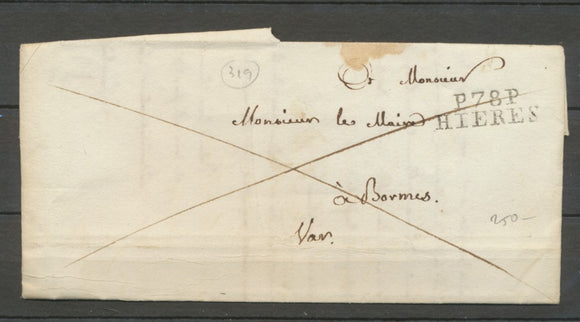 319
A Monsieur
P78P
Monsieur le Maire
HIERES
à Bormes.
250-
Var.